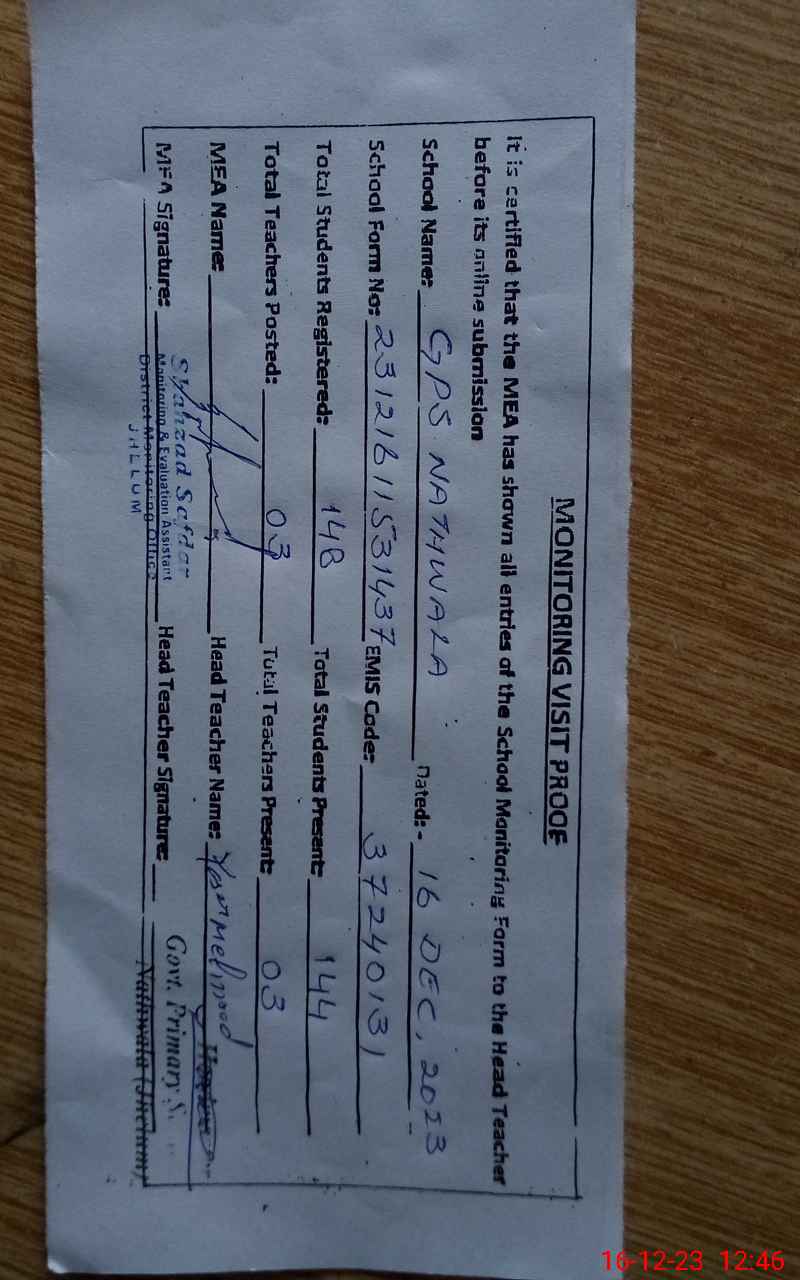 MONITORING VISIT PROOF
It is certified that the MEA has shown all entries of the School Monitoring Form to the Head Teacher
before its online submission
School Name: GPS NATHWALA Dated:- 16 DEC, 2023
School Form No: 23121611531437 EMIS Code: 37240131
Total Students Registered: 148 Total Students Present: 144
Total Teachers Posted: 03 Total Teachers Present: 03
MEA Name: Head Teacher Name: Mehmood
MEA Signature: Head Teacher Signature:
Shahzad Safdar
Monitoring & Evaluation Assistant
District Monitoring Office
JHELUM
Govt. Primary S.
Nathwala (Jhelum)
16-12-23 12:46